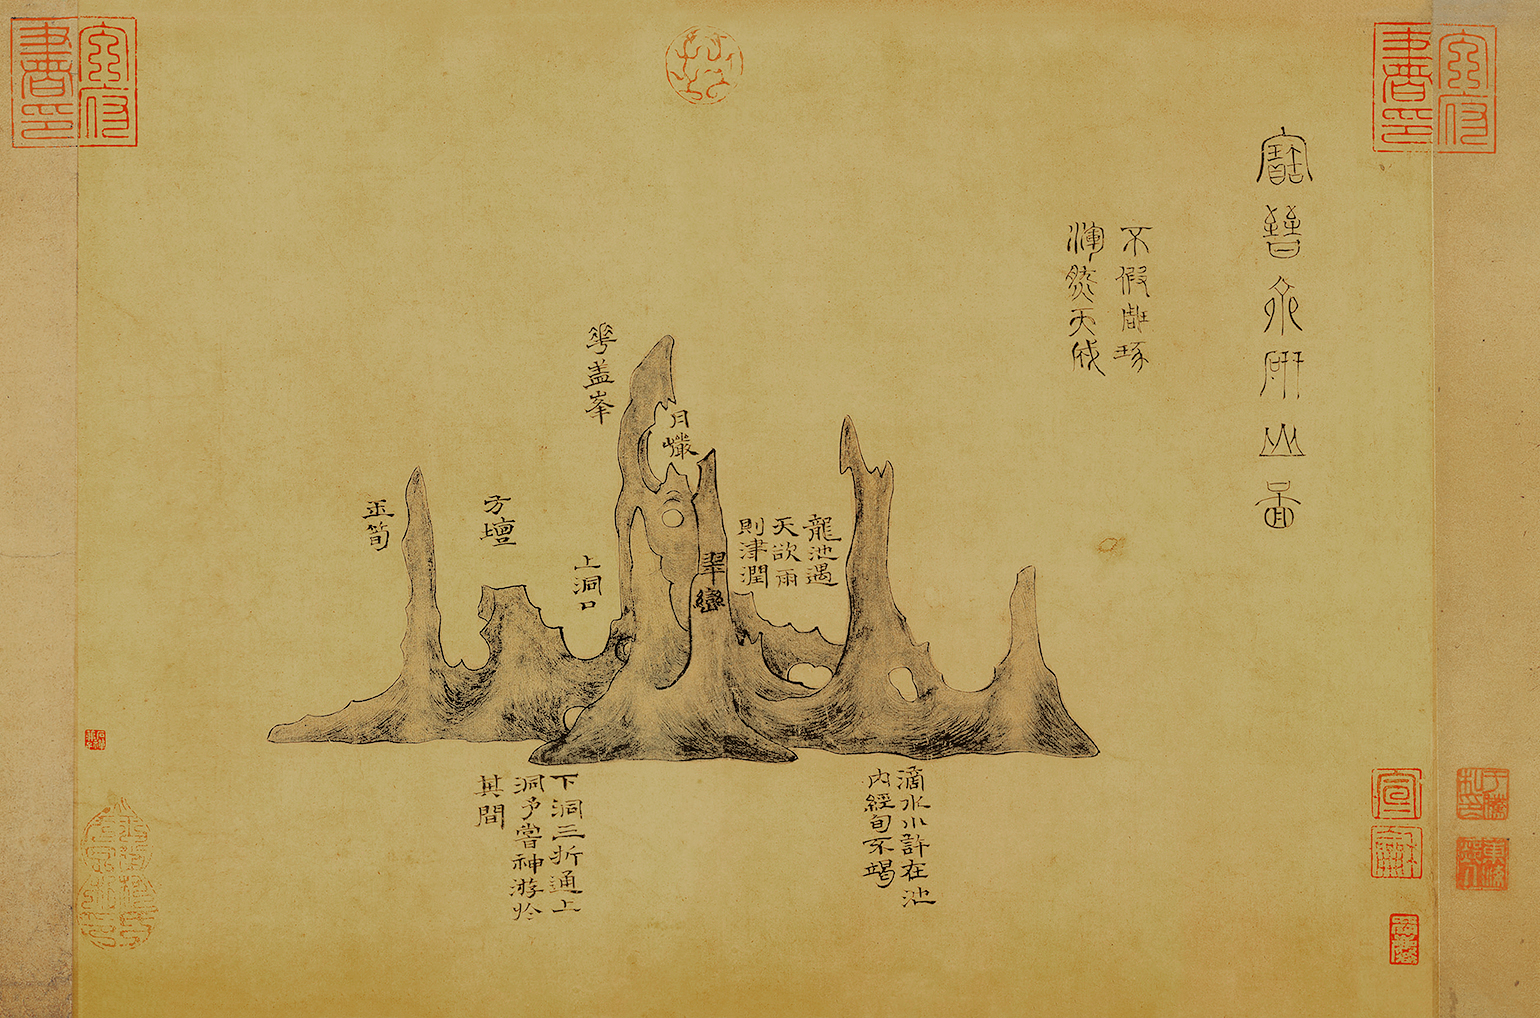 寶晉齋研山圖
不假雕琢
渾然天成
龍池遇
天欲雨
則津潤
翠巒
月巖
華盖峯
上洞口
方壇
玉筍
滴水小許在池
內經旬不竭
下洞三折通上
洞予嘗神游於
其間